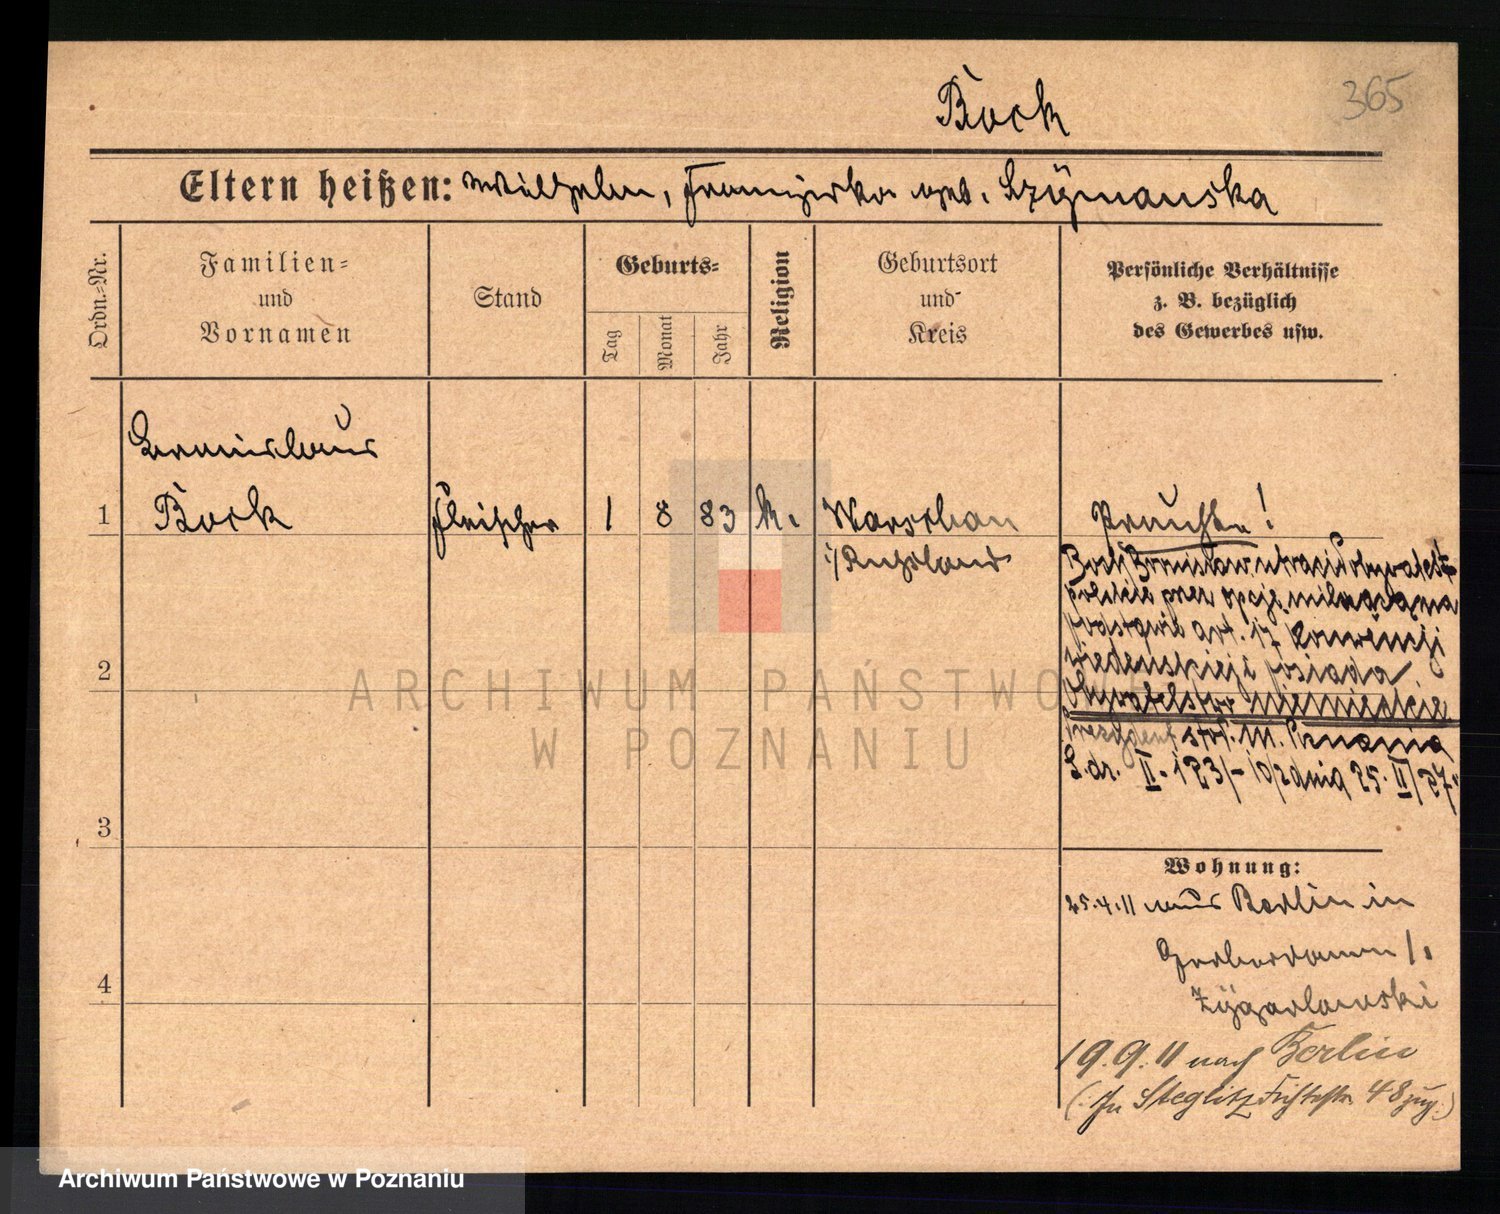 365
Bock
Eltern heißen: Wilhelm, Franziska geb. Szymanska
Ordn.-Nr.
Familien-
und
Vornamen
Stand
Geburts-
Tag
Monat
Jahr
Religion
Geburtsort
und
Kreis
Persönliche Verhältnisse
z. B. bezüglich
des Gewerbes usw.
Bronislaus
1 Bock Fleischer 1 8 83 k. Warschau
i/Russland
Preuße!
Bock Bronisław utracił obywatelst.
polskie przez opcję milczącą na
podstawie art. 17 Konwencji
wiedeńskiej i posiada
Obywatelstwo niemieckie
Prezydent stoł. m. Poznania
L.dz. II. 183/- z dnia 25. II/27.
2
3
4
Wohnung:
25.4.11 aus Berlin in
Gerberdamm 1.
Zygarlowski
19.9.11 nach Berlin
(: In Steglitz Fichtestr. 48 zug.)
ARCHIWUM PAŃSTWOWE
W POZNANIU
Archiwum Państwowe w Poznaniu